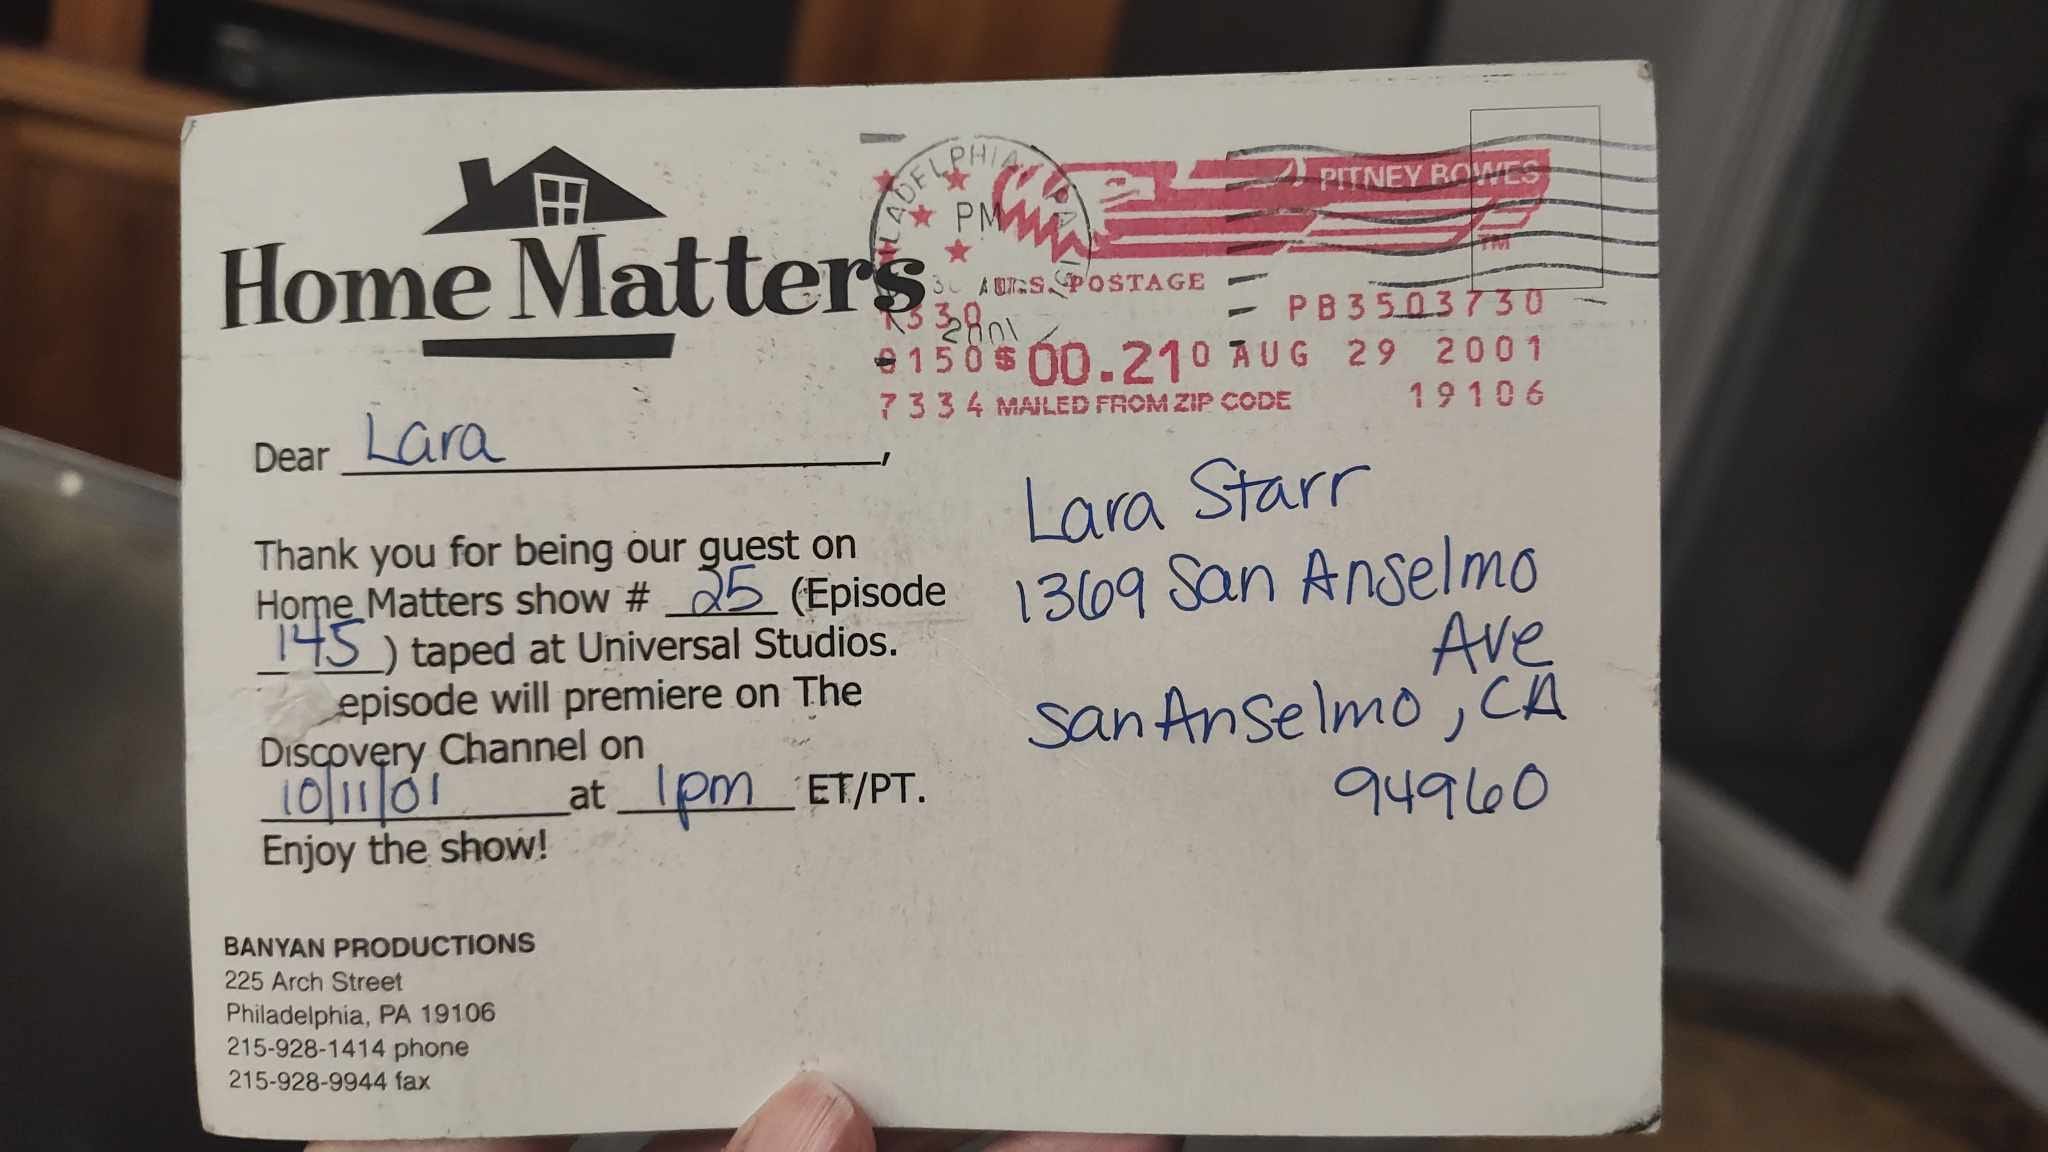 Home Matters
PHILADELPHIA PA
PM
30 AUG
2001
PITNEY BOWES
TM
U.S. POSTAGE
PB3503730
0150 $00.210 AUG 29 2001
7334 MAILED FROM ZIP CODE 19106
Dear Lara,
Thank you for being our guest on
Home Matters show # 25 (Episode
145) taped at Universal Studios.
episode will premiere on The
Discovery Channel on
10/11/01 at 1pm ET/PT.
Enjoy the show!
Lara Starr
1369 San Anselmo
Ave
San Anselmo, CA
94960
BANYAN PRODUCTIONS
225 Arch Street
Philadelphia, PA 19106
215-928-1414 phone
215-928-9944 fax